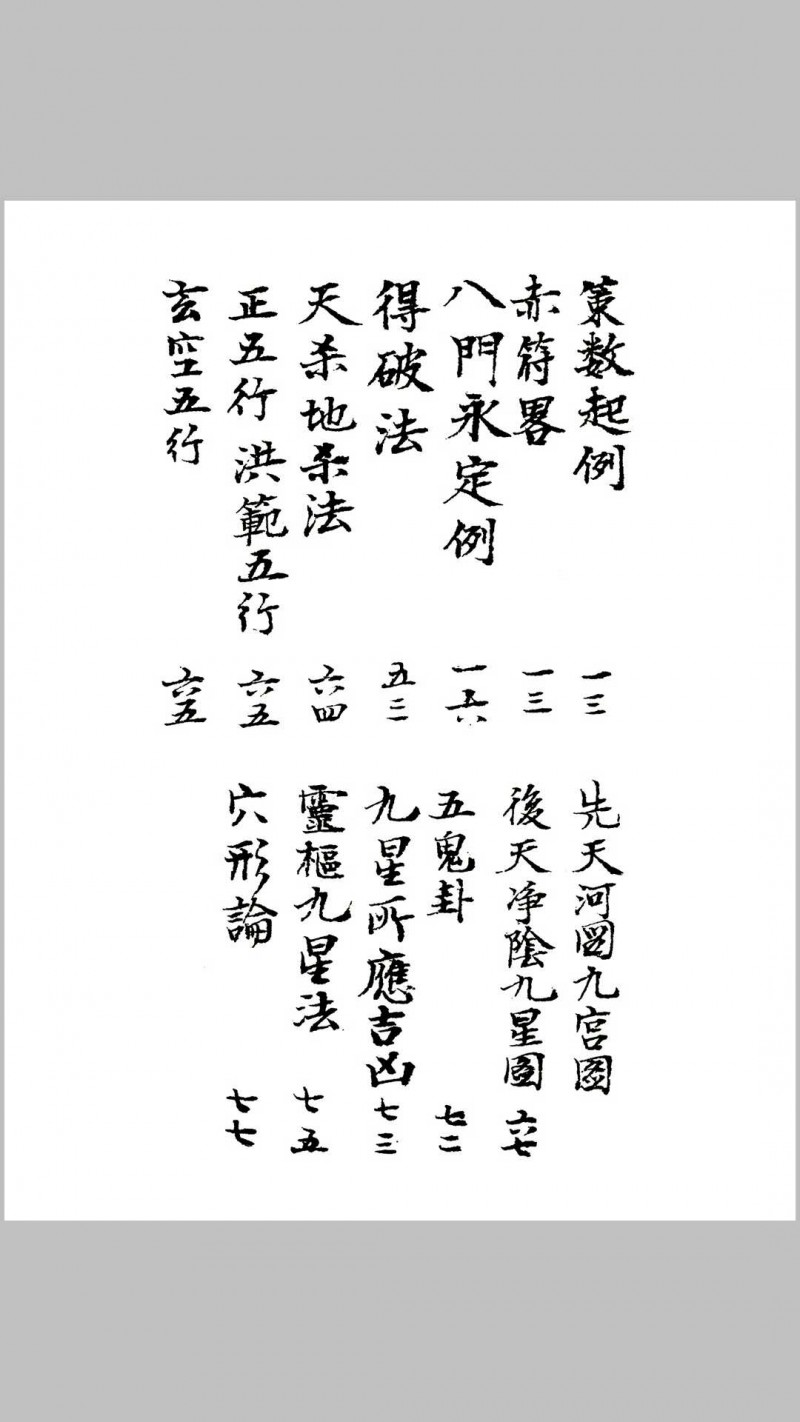 策数起例 一三
赤符畧 一三
八門永定例 一六
得破法 五三
天杀地杀法 六四
正五行 洪範五行 六五
玄空五行 六五
先天河図九宫圖
後天净陰九星圖 六七
五鬼卦 七二
九星所應吉凶 七三
靈樞九星法 七五
穴形論 七七